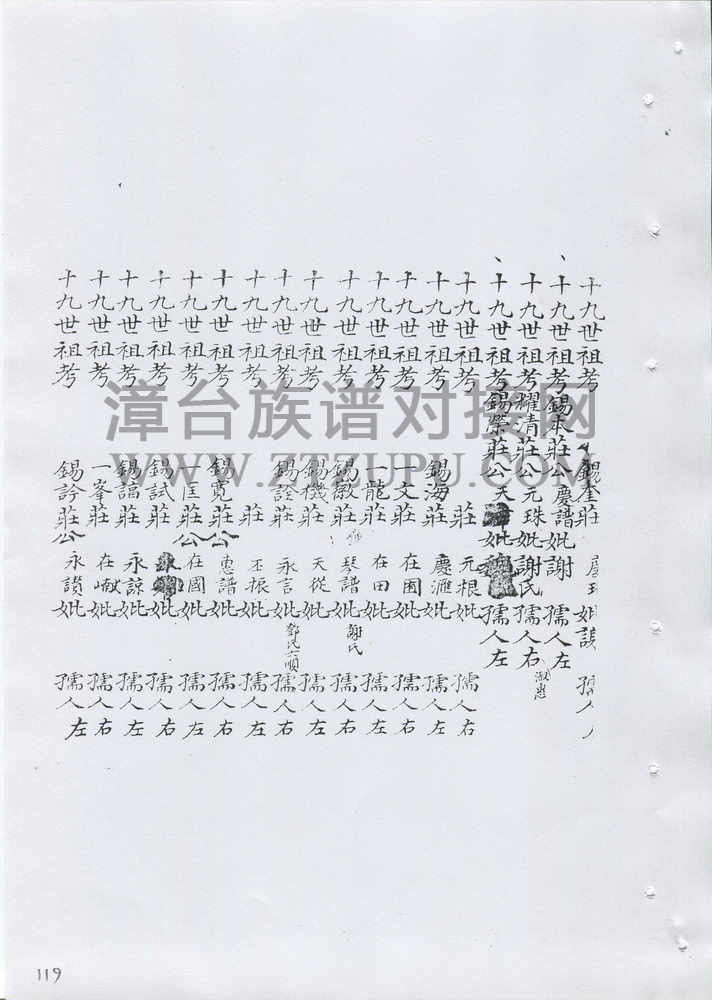 十九世祖考 錫奎莊 妣 孺人
十九世祖考錫本莊公慶譜妣謝 孺人左
十九世祖考耀清莊公元珠妣謝氏 孺人右 淑忠
十九世祖考錫榮莊公天 妣 孺人左
十九世祖考 莊 元根妣 孺人右
十九世祖考 錫海莊 慶滙妣 孺人左
十九世祖考 一文莊 在囿妣 孺人右
十九世祖考 一龍莊 在田妣 孺人左
十九世祖考 錫徽莊 琴譜妣謝氏 孺人右
十九世祖考 錫機莊 天從妣 孺人左
十九世祖考 錫詮莊 永言妣鄧氏六順 孺人右
十九世祖考 莊 丕振妣 孺人左
十九世祖考 錫寬莊公 惠譜妣 孺人右
十九世祖考 一匡莊公 在國妣 孺人左
十九世祖考 錫試莊 妣 孺人右
十九世祖考 錫謞莊 永諒妣 孺人左
十九世祖考 一峯莊 在嶽妣 孺人右
十九世祖考 錫診莊公 永讃妣 孺人左
漳台族谱对接网
WWW.ZTZUPU.COM
119